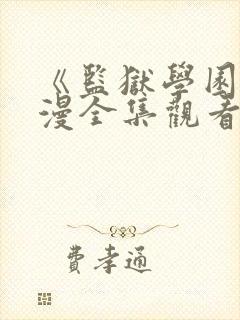 《監獄學園
漫全集觀看
費孝通